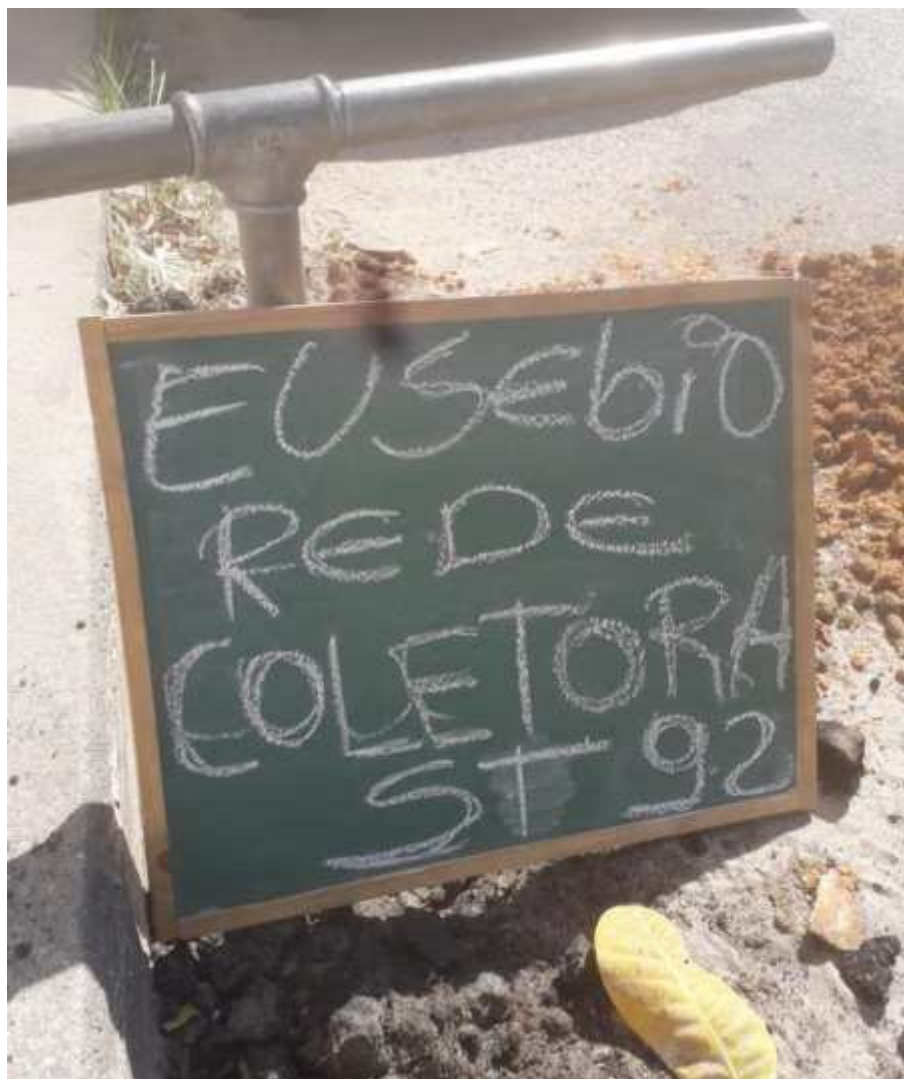 EUSEbiO
REDE
COLETORA
ST 92